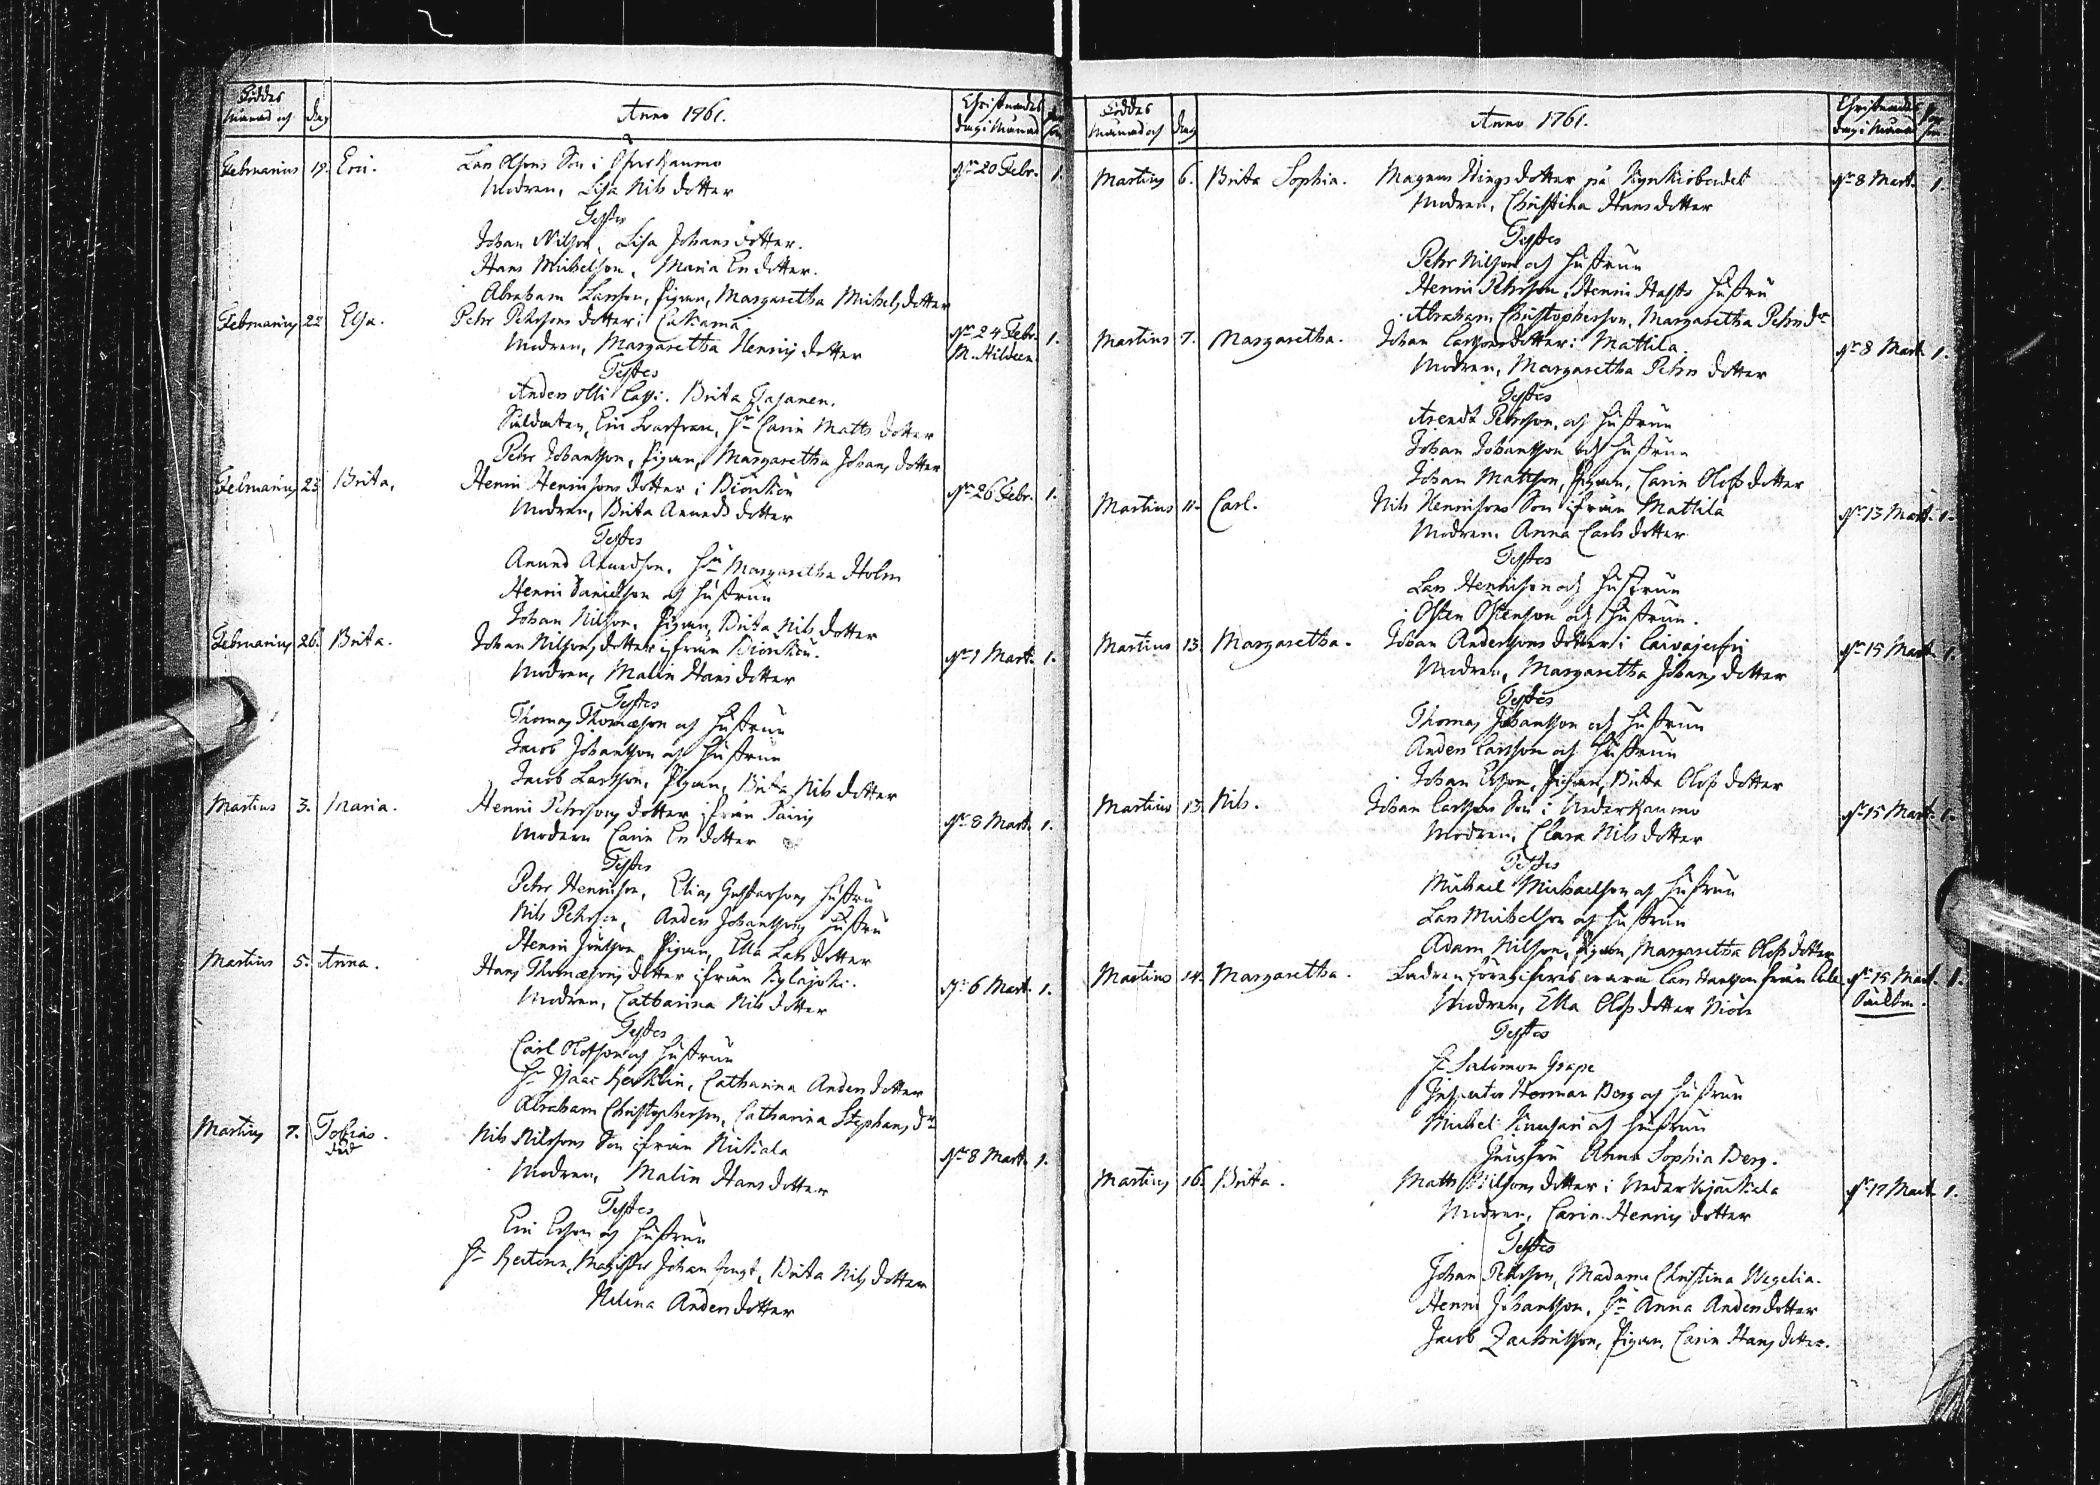 Födde Månad och dag
Anno 1761.
Christnades dag i Månad
Februarius 19. Eric. Lars Olsons Son i Öfwerkaumo d. 20 Febr. 1.
Modren, Lisa Nils dotter
Testes
Johan Nilson, Lisa Johans dotter.
Hans Michelson, Maria Ers dotter.
Abraham Larsson, Pigan, Margaretha Michels dotter
Februarius 22 Elsa. Pehr Pehrsons dotter i d. 24 Febr. 1.
Modren, Margaretha Henrics dotter M. Hildeen.
Testes
Anders Olli Lassi. Brita Tajanen.
Soldaten, Eric H. Carin Matts dotter
Pehr Johansson, Pigan, Margaretha Johans dotter
Februarius 25 Brita. Henric Henricsons dotter i Biörkön d. 26 Febr. 1.
Modren, Brita Anunds dotter
Testes
Anund Anundson. H. Margaretha Holm
Henric Danielson och hustrun
Johan Nilson, Pigan, Brita Nils dotter
Februarius 26. Brita. Johan Nilsons dotter ifrån Biörkön. d. 1 Mart. 1.
Modren, Malin Hans dotter
Testes
Thomas Thomæson och hustrun
Jacob Johansson och hustrun
Jacob Larsson, Pigan, Brita Nils dotter
Martius 3. Maria. Henric Pehrsons dotter ifrån d. 8 Mart. 1.
Modren Carin Ers dotter
Testes
Pehr Henricson, Elias Gustafsons hustru
Nils Pehrson, Anders Johanssons hustru
Henric Jönsson, Pigan, Ella Lars dotter
Martius 5. Anna. Hans Thomæsons dotter ifrån Kylājoki. d. 6 Mart. 1.
Modren, Catharina Nils dotter
Testes
Carl Olofson och hustrun
H. Isaac, Catharina Anders dotter
Abraham Christopherson, Catharina Stephans dr
Martius 7. Tobias. Nils Nilssons Son ifrån Kukkola d. 8 Mart. 1.
död
Modren, Malin Hans dotter
Testes
Eric Erson och hustrun
H. Rectorn, Magister Johan, Brita Nils dotter
Helena Anders dotter
Födde Månad och dag
Anno 1761.
Christnades dag i Månad
Martius 6. Brita Sophia. Magnus dotter på d. 8 Mart. 1
Modren, Christina Hans dotter
Testes
Pehr Nilson och hustrun
Henric Pehrson, Henric hustru
Abraham Christopherson, Margaretha Pehrs dr
Martius 7. Margaretha. Johan Larssons dotter i Mattila d. 8 Mart. 1.
Modren, Margaretha Pehrs dotter
Testes
Arendt Pehrson, och hustrun
Johan Johansson och hustrun
Johan Mattson, Pigan, Carin Olofs dotter
Martius 11. Carl. Nils Henricsons Son ifrån Mattila d. 13 Mart. 1.
Modren. Anna Carls dotter
Testes
Lars Henricson och hustrun
Östen Östenson och hustrun.
Martius 13. Margaretha. Johan Anderssons dotter i Laivajerfvi d. 15 Mart. 1.
Modren, Margaretha Johans dotter
Testes
Thomas Johansson och hustrun
Anders Larsson och hustrun
Johan Erson, Pigan, Brita Olofs dotter
Martius 13. Nils. Johan Larssons Son i Nederkaumo d. 15 Mart. 1.
Modren, Clara Nils dotter
Testes
Michael Michaelson och hustrun
Lars Michelson och hustrun
Adam Nilson, Pigan, Margaretha Olofs dotter
Martius 14. Margaretha. Fadren föregifwes wara Lars Hansson från d. 15 Mart. 1.
Modren, Ella Olofs dotter
Testes
H. Salomon Grape
Inspector Herman Berg och hustrun
Michel och hustrun
Jungfru Anna Sophia Berg.
Martius 16. Brita. Matts Nilsons dotter i Nedervojakkala d. 17 Mart. 1.
Modren, Carin Henrics dotter
Testes
Johan Pehrson, Madame Christina Wegelia.
Henric Johansson, H. Anna Anders dotter
Jacob Zachrisson, Pigan, Carin Hans dotter.